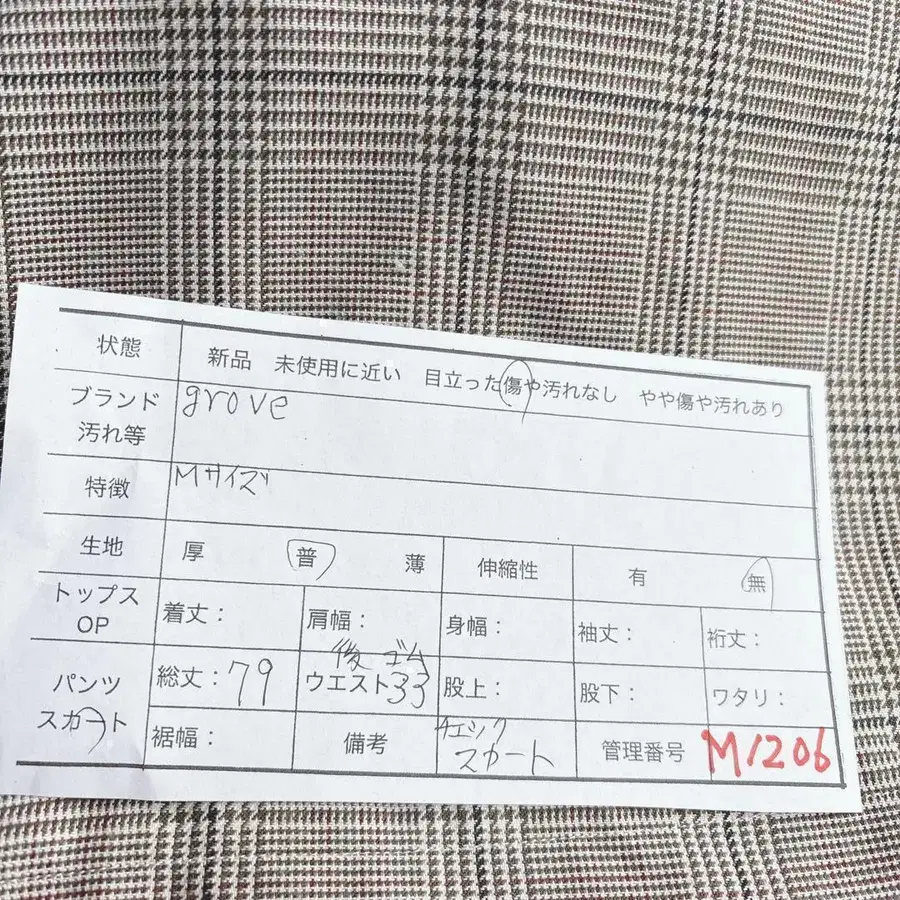 状態 新品 未使用に近い 目立った傷や汚れなし やや傷や汚れあり
ブランド 汚れ等 grove
特徴 Mサイズ
生地 厚 普 薄 伸縮性 有 無
トップス OP 着丈： 肩幅： 身幅： 袖丈： 裄丈：
後ゴム
パンツ スカート 総丈：79 ウエスト33 股上： 股下： ワタリ：
裾幅： 備考 チェックスカート 管理番号 M1206